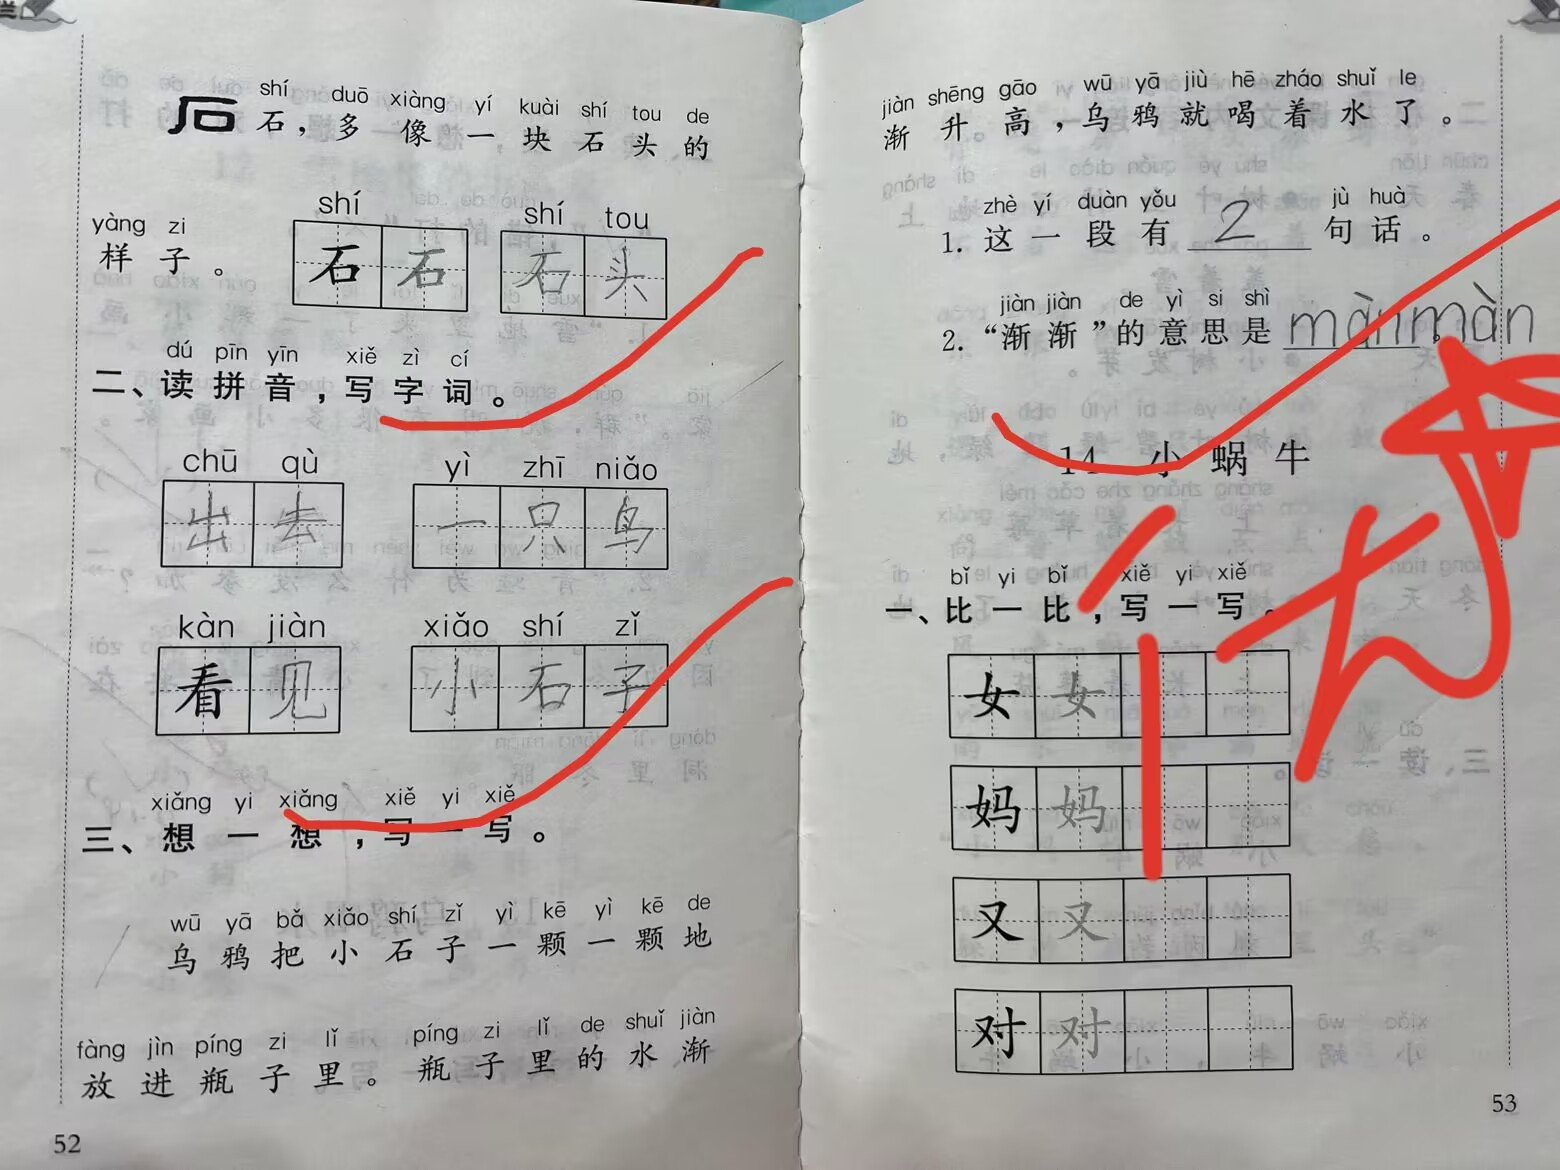 shí duō xiàng yí kuài shí tou de
石 石，多像一块石头的
yàng zi
样子。
shí shí tou
石 石 石 头
二、读拼音，写字词。
dú pīn yīn xiě zì cí
chū qù yì zhī niǎo
出 去 一 只 鸟
kàn jiàn xiǎo shí zǐ
看 见 小 石 子
xiǎng yi xiǎng xiě yi xiě
三、想一想，写一写。
wū yā bǎ xiǎo shí zǐ yì kē yì kē de
乌鸦把小石子一颗一颗地
fàng jìn píng zi lǐ píng zi lǐ de shuǐ jiàn
放进瓶子里。瓶子里的水渐
52
jiàn shēng gāo wū yā jiù hē zháo shuǐ le
渐升高，乌鸦就喝着水了。
zhè yí duàn yǒu jù huà
1. 这一段有 2 句话。
jiàn jiàn de yì si shì
2. “渐渐”的意思是 mànmàn。
14 小蜗牛
bǐ yi bǐ xiě yi xiě
一、比一比，写一写。
女 女
妈 妈
又 又
对 对
53
优